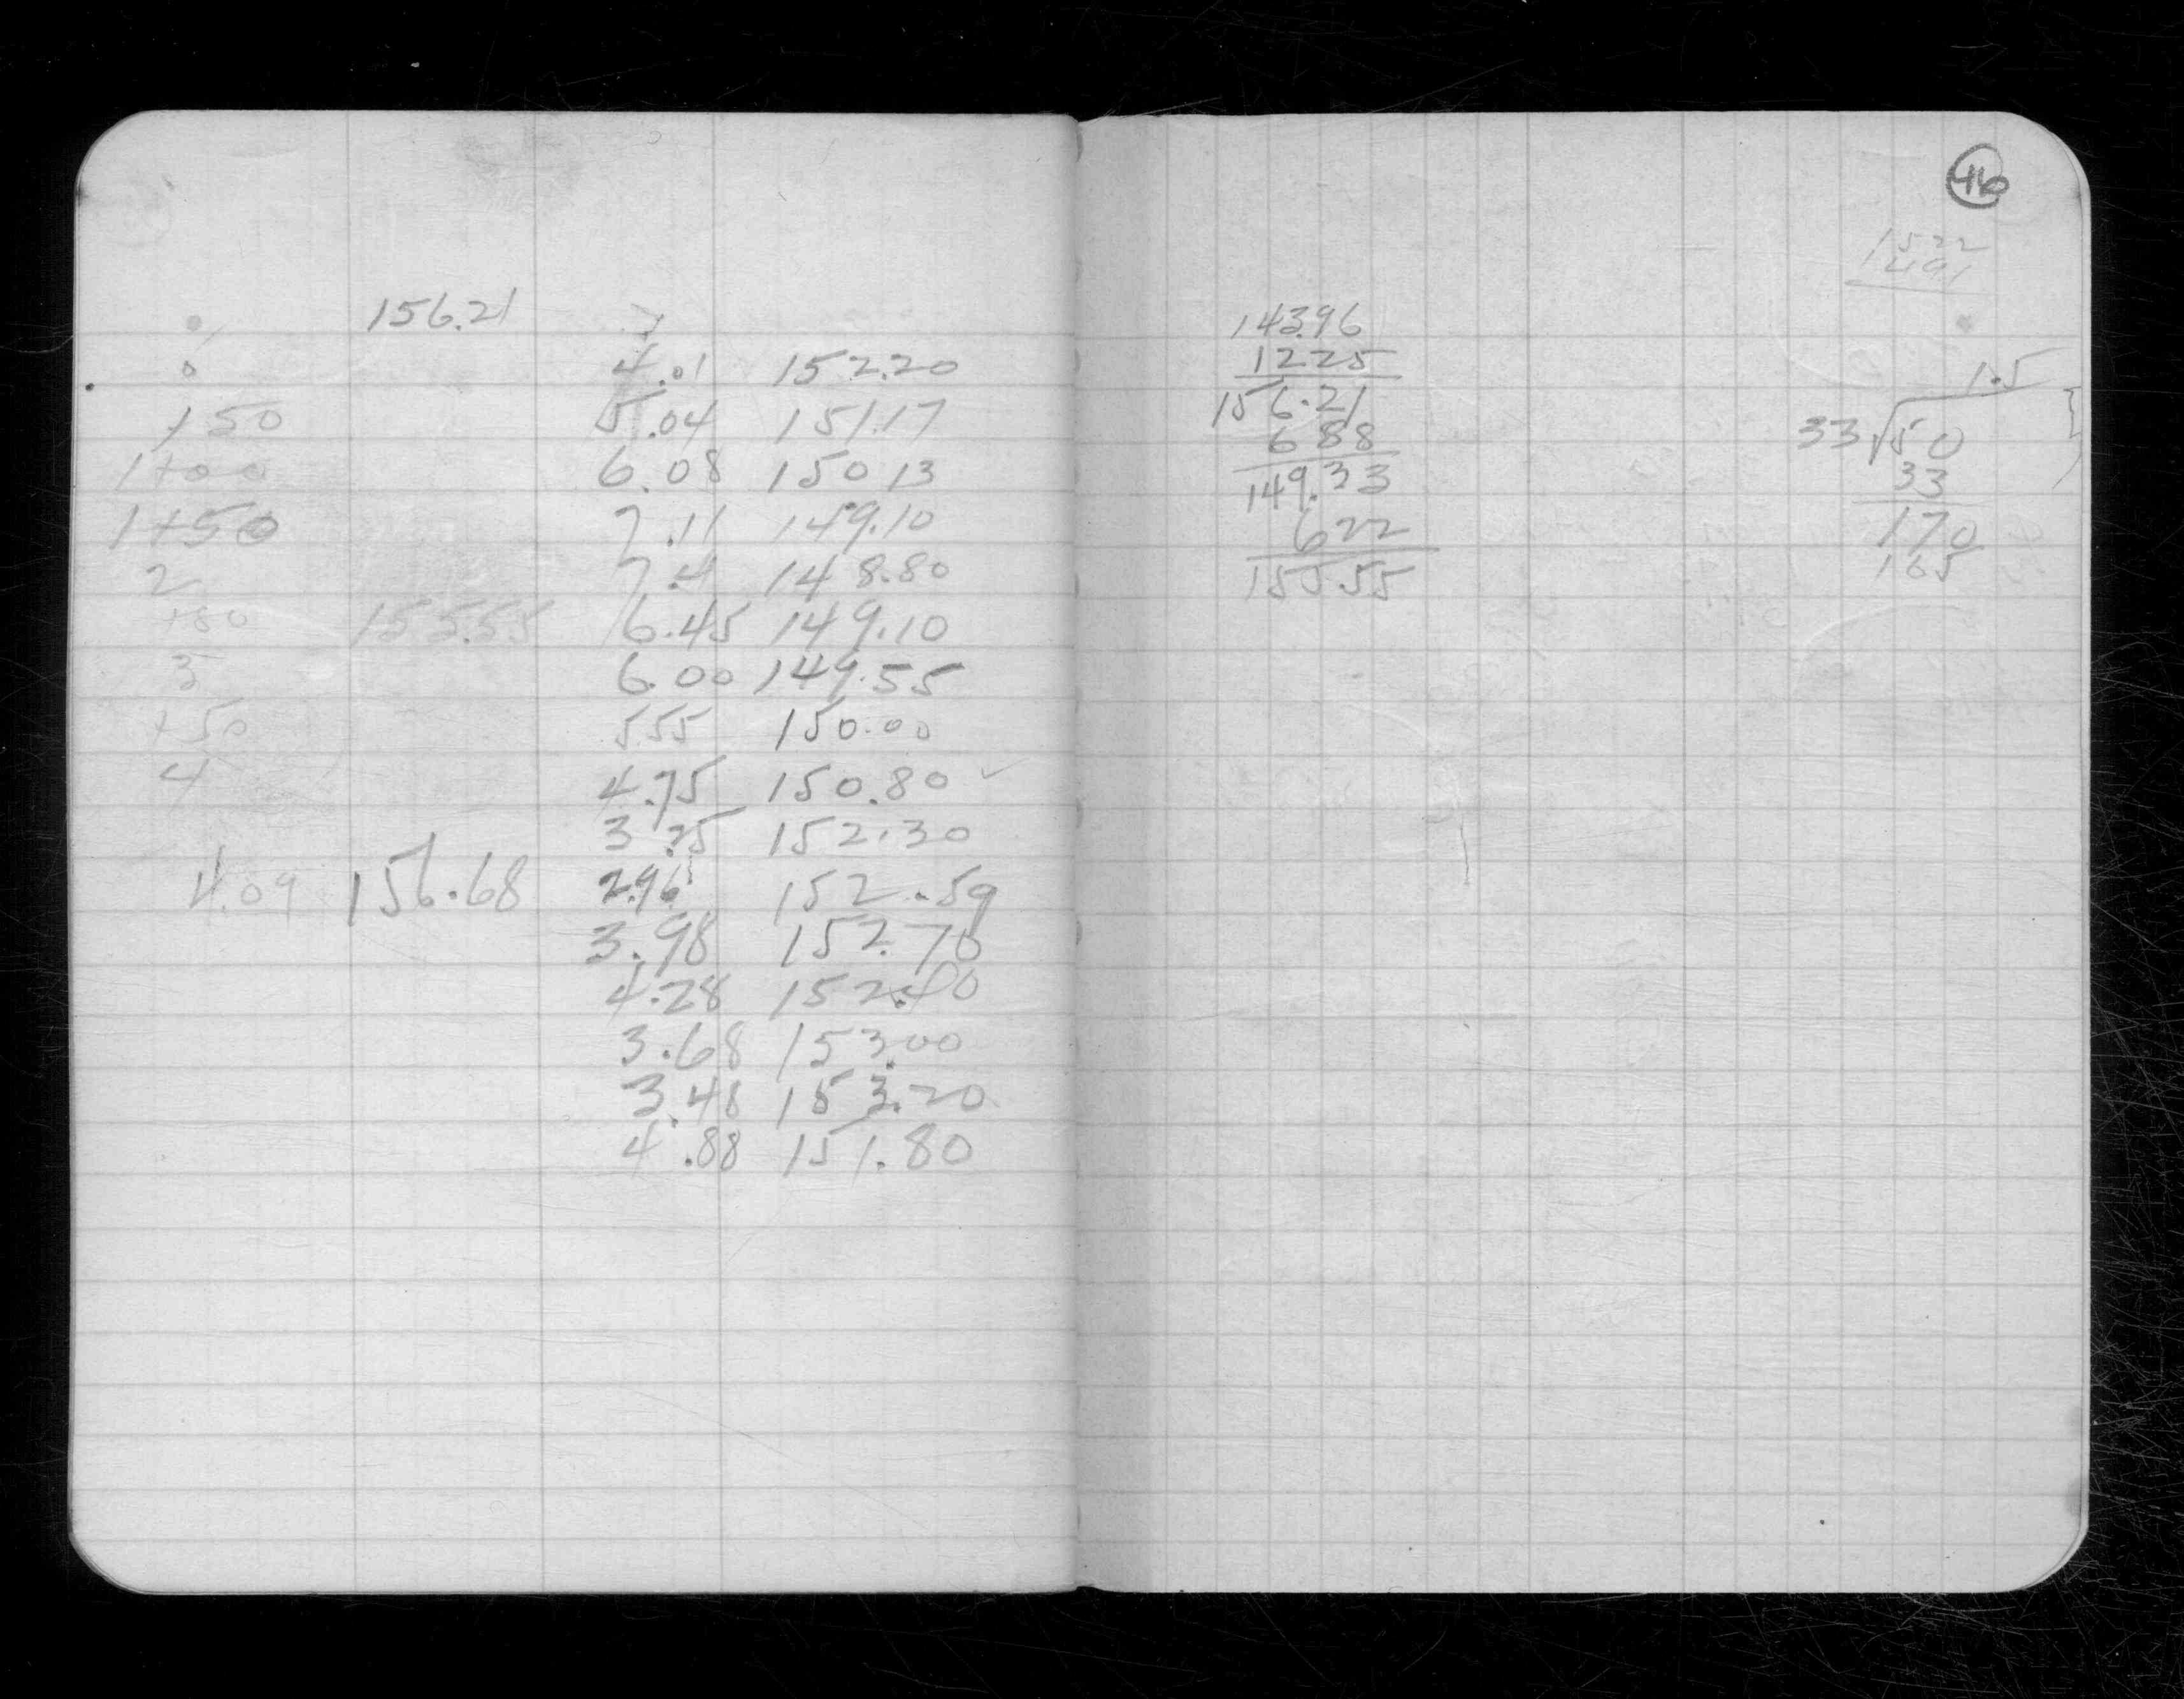 156.21
0 4.01 152.20
+50 5.04 151.17
1+00 6.08 150 13
1+50 7.11 149.10
2 7.4 148.80
+50 155.55 6.45 149.10
3 6.00 149.55
+50 5.55 150.00
4 4.75 150.80 ✓
3.25 152.30
4.09 156.68 2.96 152.59
3.98 152.70
4.28 152.40
3.68 153.00
3.48 153.20
4.88 151.80
46
1522
491
143.96
1225
156.21
688
149.33
622
155.55
1.5
33 50
33
170
165